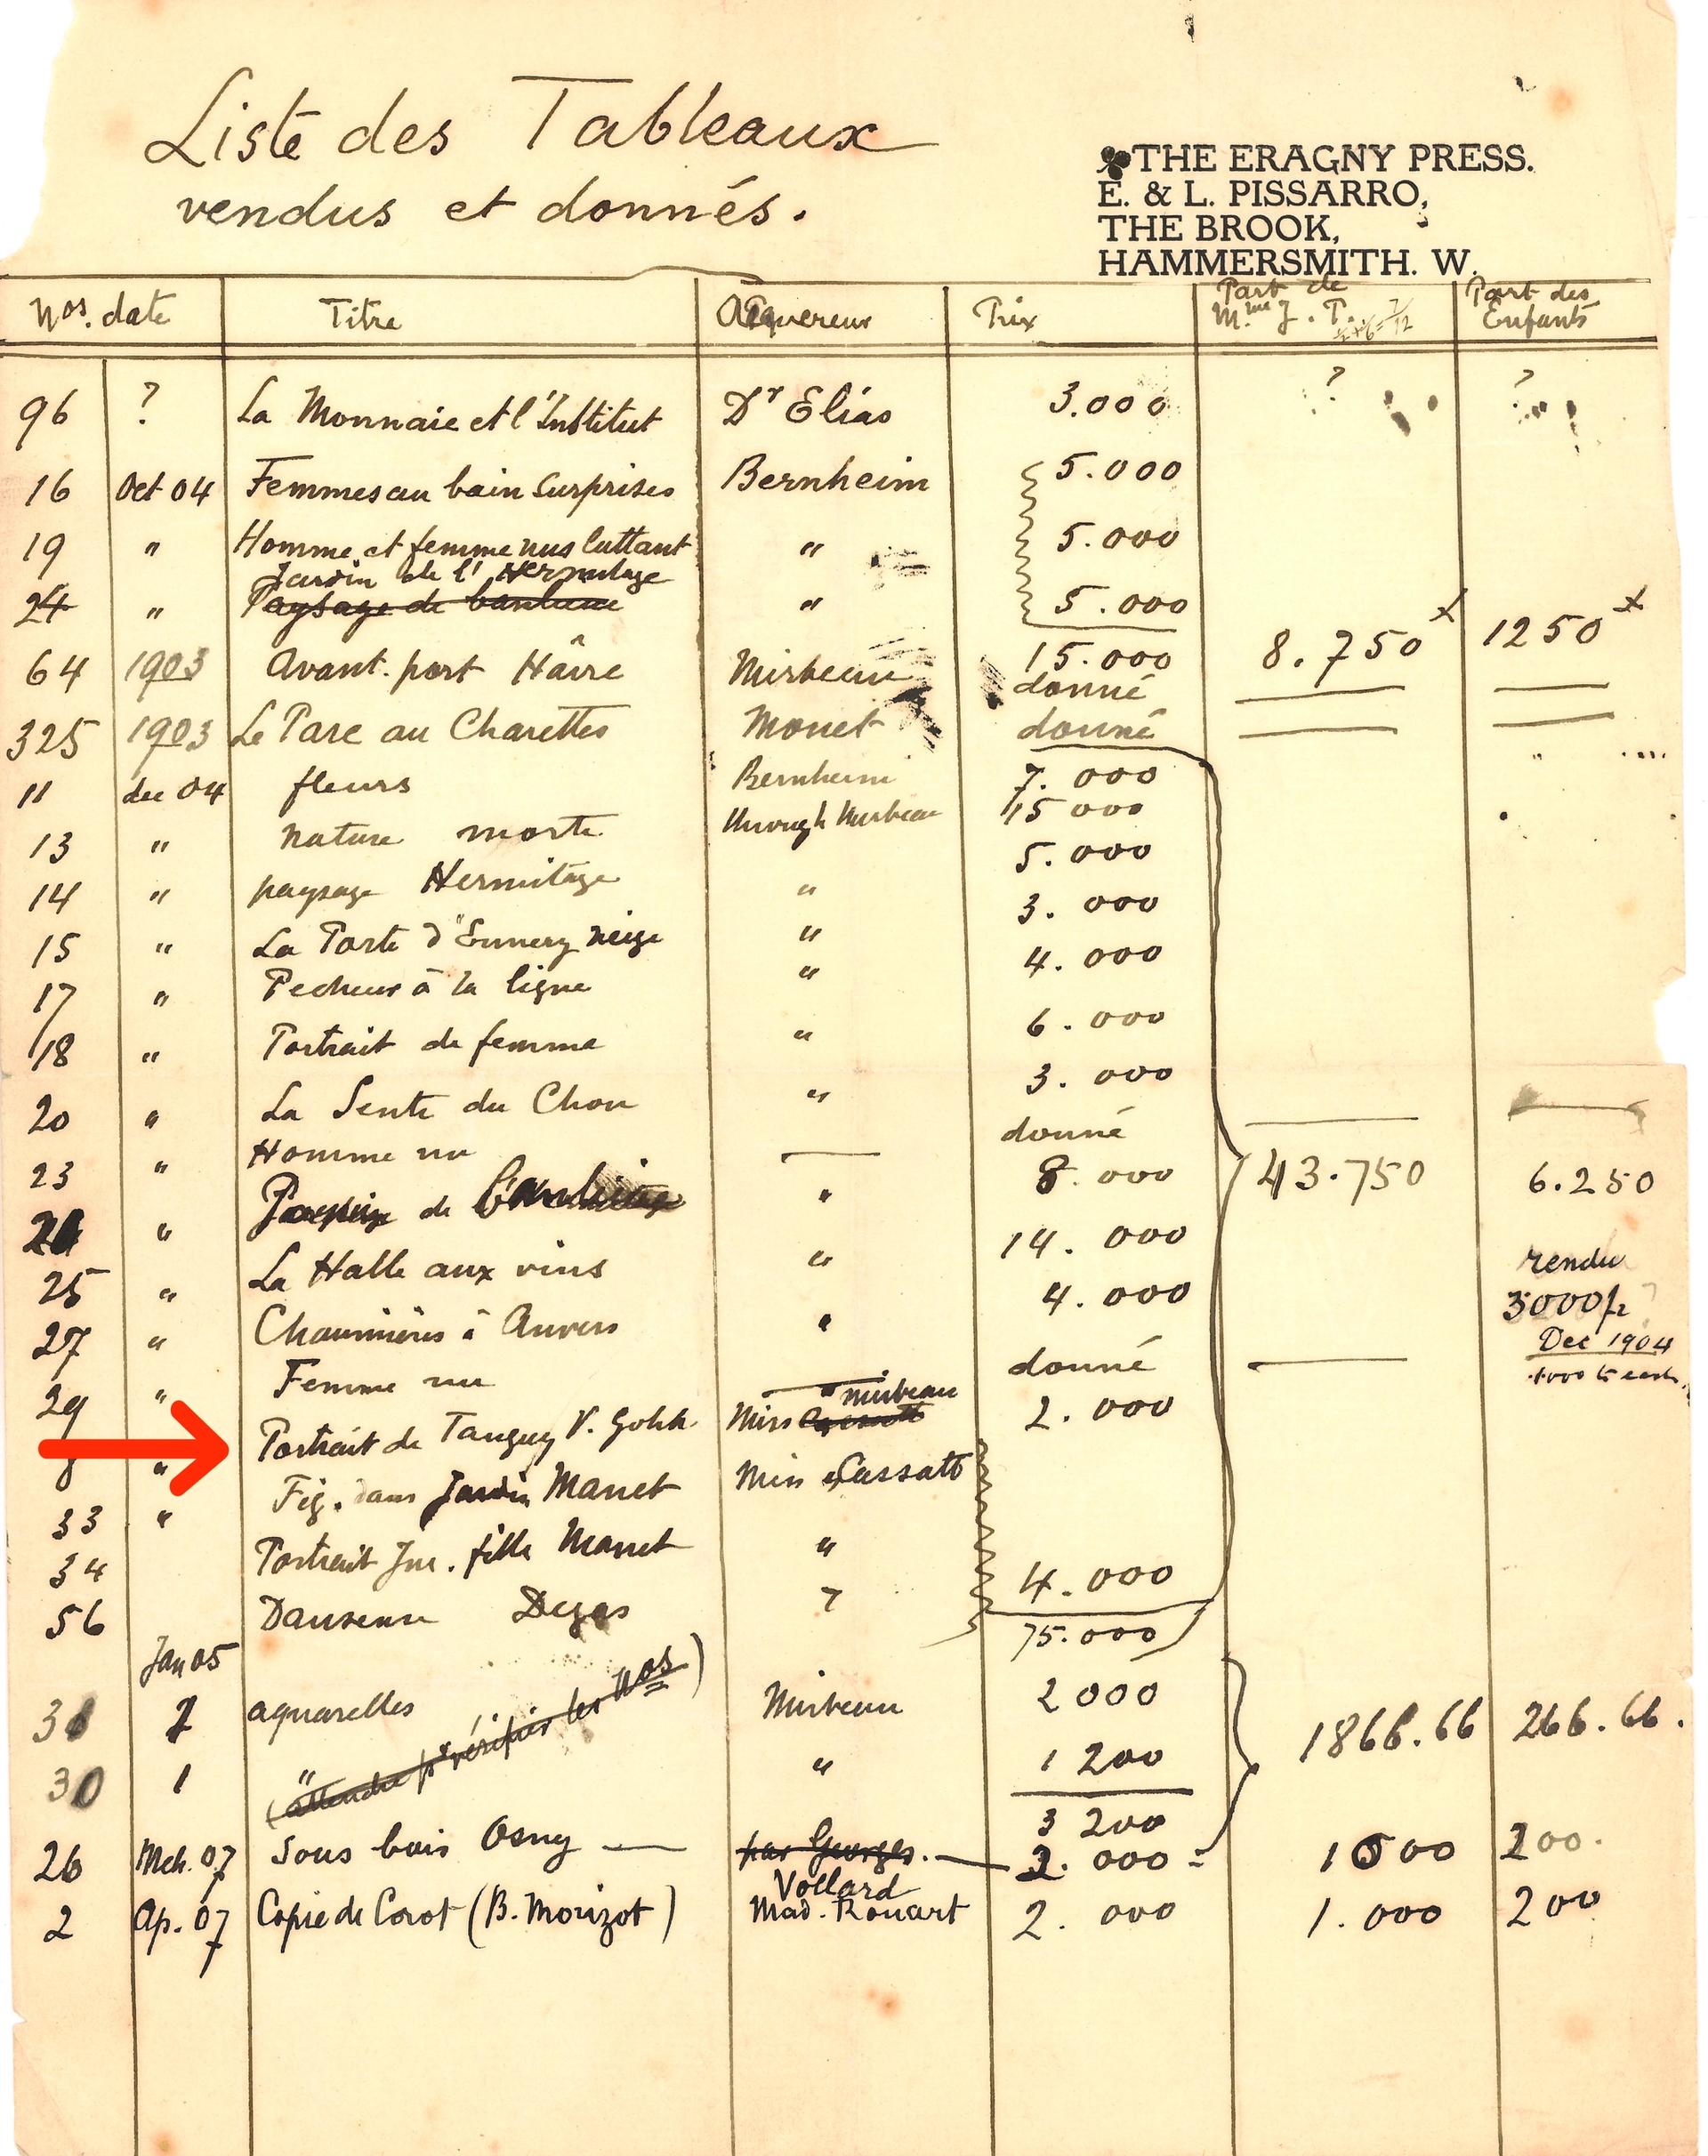 Liste des Tableaux
vendus et donnés.
THE ERAGNY PRESS.
E. & L. PISSARRO,
THE BROOK,
HAMMERSMITH. W.
Nos. date Titre Acquereur Prix Part de Mme J. P. 7/12 Part des Enfants
96 ? La Monnaie et l'Institut Dr Elias 3.000 ? ?
16 Oct 04 Femmes au bain surprises Bernheim 5.000
19 " Homme et femme nus luttant " 5.000
Jardin de l'Hermitage
24 " Paysage de banlieue " 5.000
15.000 8.750 x 1250 x
64 1903 Avant-port Hâvre Mirbeau donné
325 1903 Le Parc au Charettes Monet donné
11 dec 04 fleurs Bernheim 7.000
13 " nature morte through Mirbeau 15 000
14 " paysage Hermitage " 5.000
15 " La Porte d'Ennery neige " 3.000
17 " Pecheur à la ligne " 4.000
18 " Portrait de femme " 6.000
20 " La Sente du Chou " 3.000
23 " Homme nu — donné
" de banlieue " 8.000 43.750 6.250
25 " La Halle aux vins " 14.000
27 " Chaumières à Auvers " 4.000
rendu
3000 fr
Dec 1904
1000 to each
29 " Femme nu — donné
8 " Portrait de Tanguy V. Gohh Miss Cassatt " Mirbeau 2.000
33 " Fig. dans Jardin Manet Miss Cassatt
34 Portrait Jne. fille Manet "
56 Danseuse Degas " 4.000
75.000
Jan 05
31 2 aquarelles Mirbeau 2000 1866.66 266.66.
30 1 " " 1200
(attendre pr vérifier les Nos)
3 200
26 Mch. 07 Sous bois Osny — par Georges. — 2.000 = 1000 200.
Vollard
2 Ap. 07 Copie de Corot (B. Morizot) Mad. Rouart 2.000 1.000 200